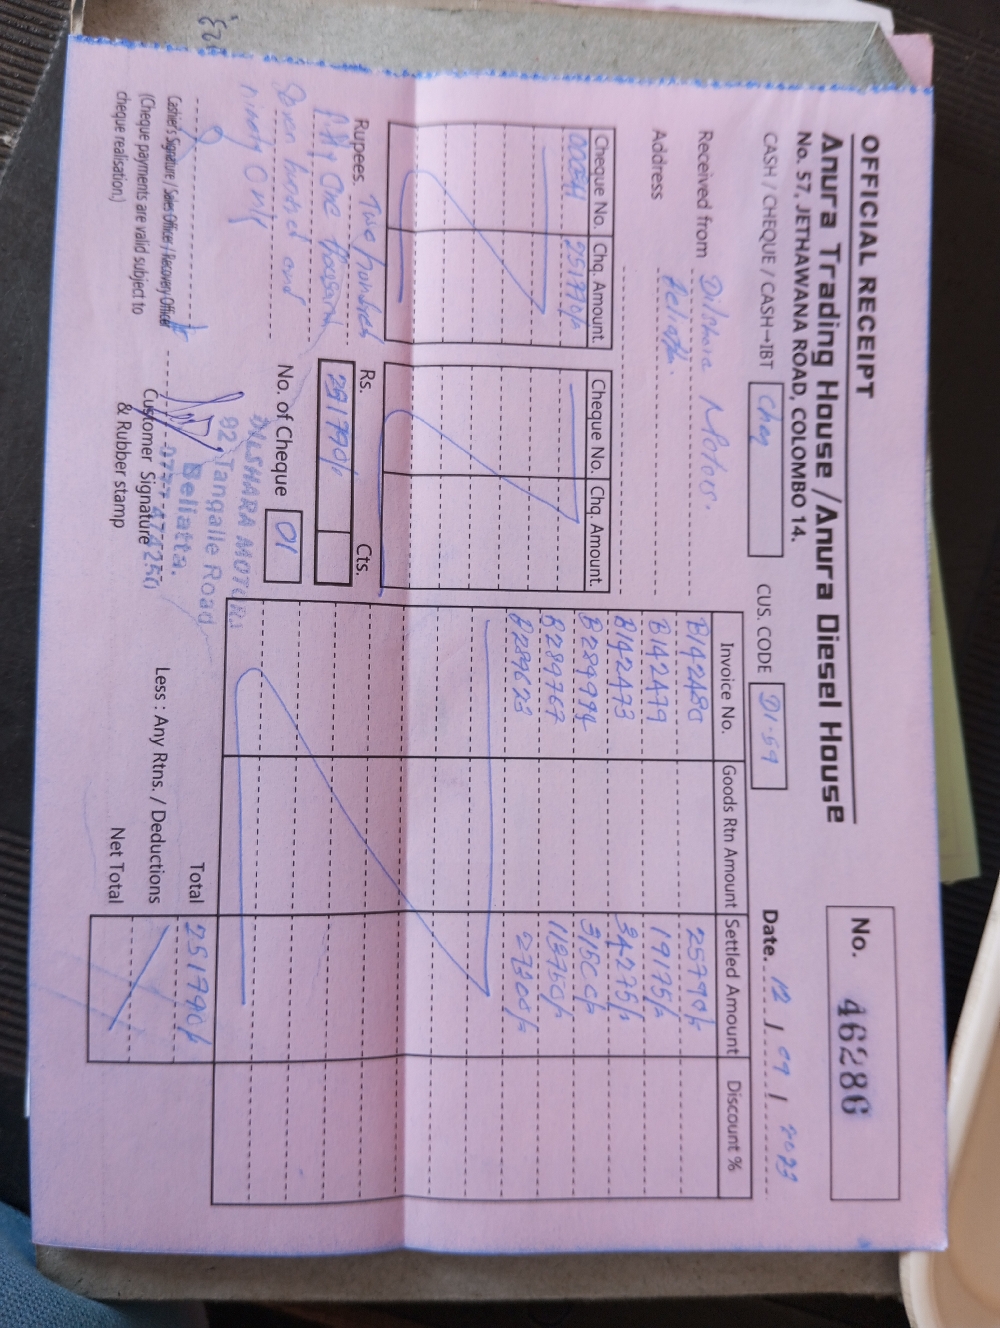 OFFICIAL RECEIPT
Anura Trading House / Anura Diesel House
No. 57, JETHAWANA ROAD, COLOMBO 14.
No. 46286
CASH / CHEQUE / CASH→IBT Cheq
CUS. CODE D1-59
Date. 12 / 09 / 2023
Received from Dilshara Motors.
Address Beliatta.
Cheque No. Chq. Amount. Cheque No. Chq. Amount.
000541 251790/-
Invoice No. Goods Rtn Amount Settled Amount Discount %
B142480 25790/-
B142479 19175/-
B142473 34275/-
B284994 31500/-
B289767 113750/-
B289623 27300/-
Rupees. Two hundred
fifty one thousand
Seven hundred and
ninety only
Rs. Cts.
251790/-
No. of Cheque 01
DILSHARA MOTORS
92 Tangalle Road
Beliatta.
0777 474250
Cashier's Signature / Sales Officer / Recovery Officer
(Cheque payments are valid subject to
cheque realisation.)
Customer Signature
& Rubber stamp
Total 251790/-
Less : Any Rtns. / Deductions
Net Total